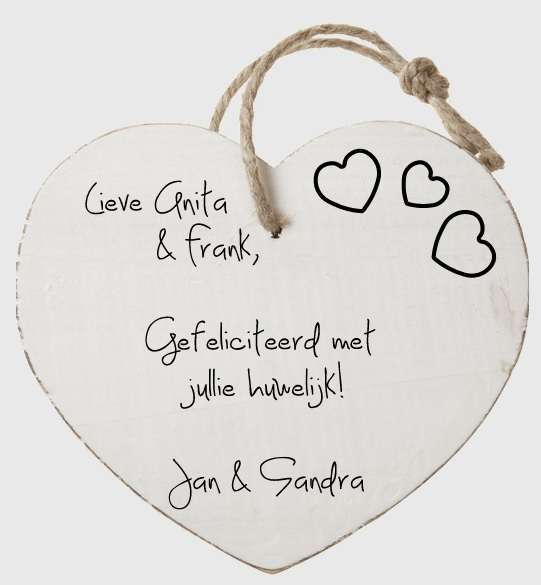 Lieve Anita
& Frank,
Gefeliciteerd met
jullie huwelijk!
Jan & Sandra